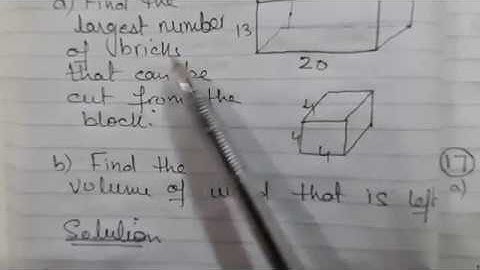 a) Find the
largest number
of bricks
that can be
cut from the
block.
13
20
4
4
4
b) Find the
volume of that is left
Solution
17
a)